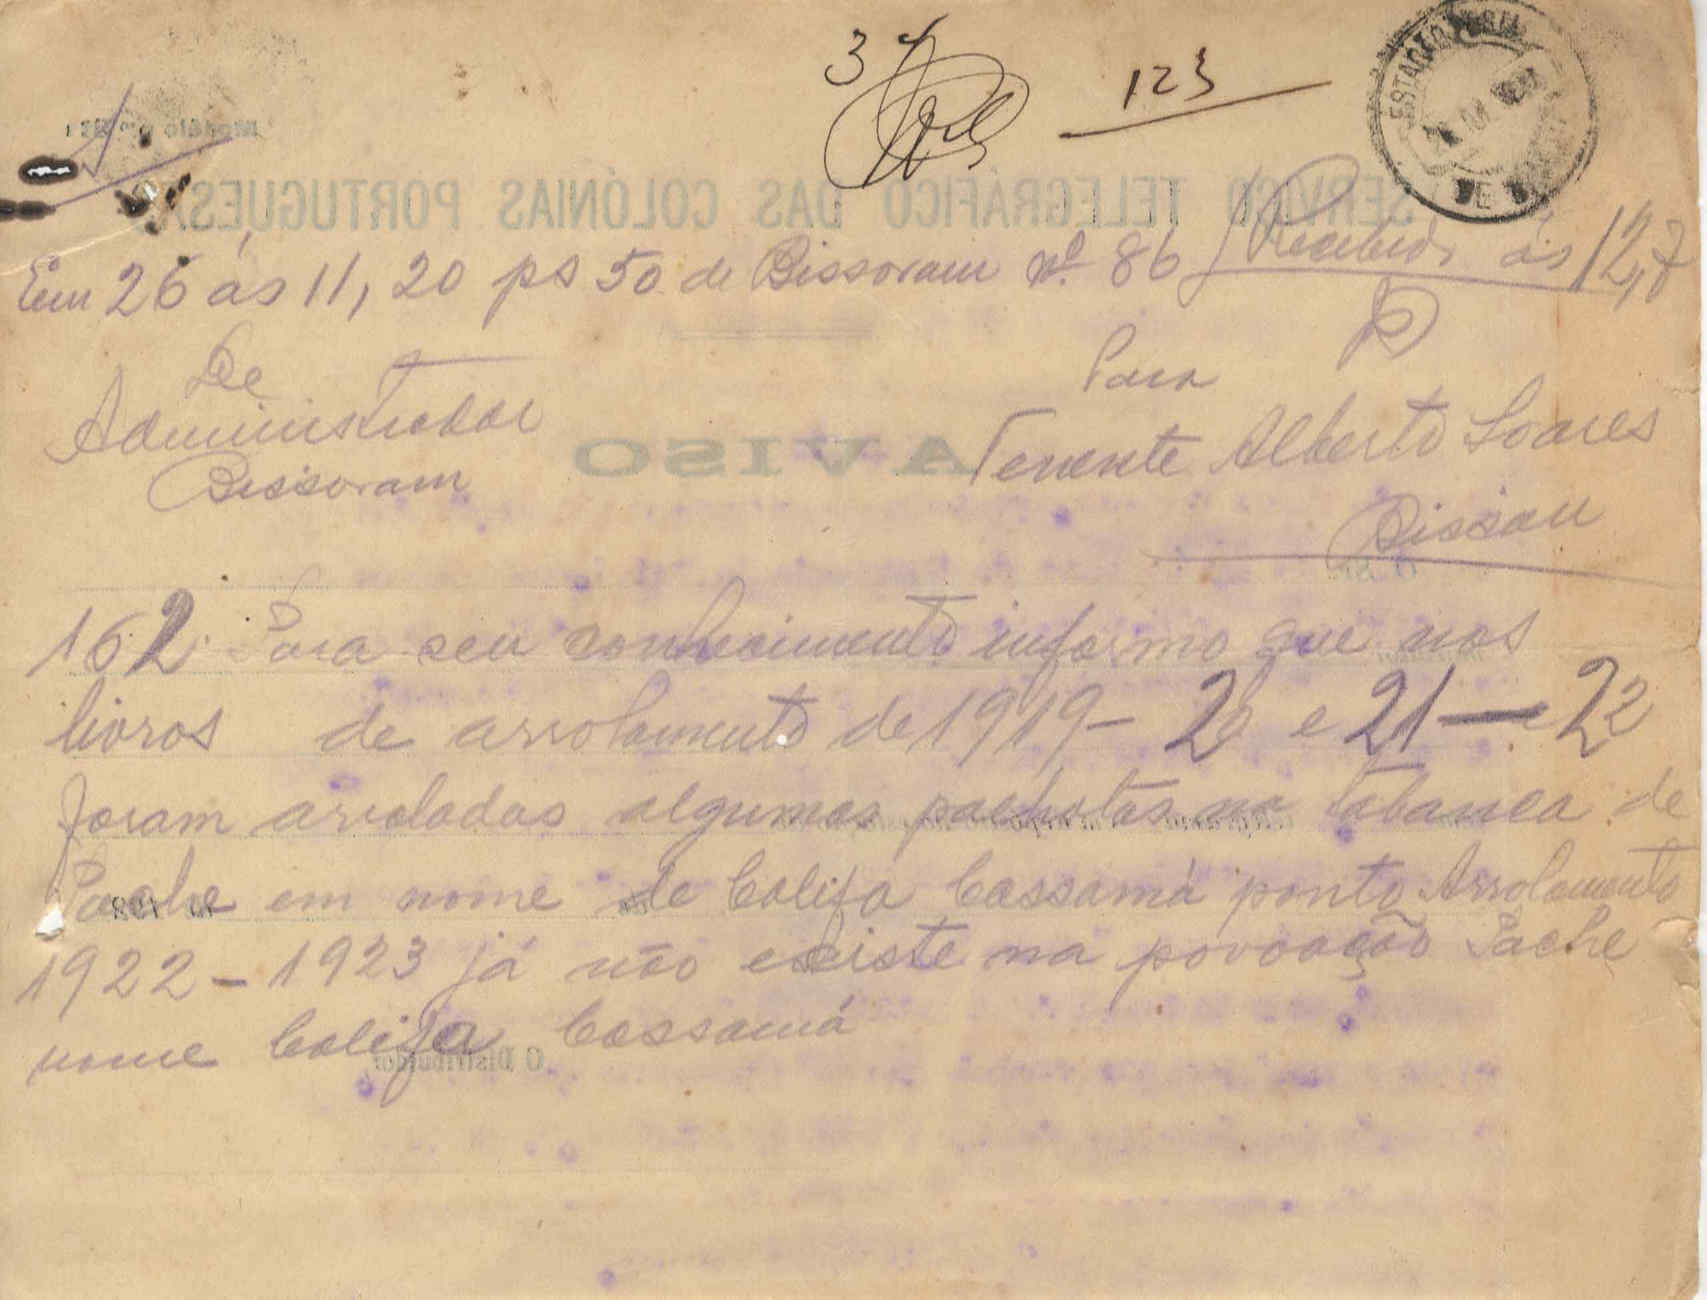 37
123
ESTAÇÃO
DE
Em 26 ás 11,20 ps 50 de Bissoram nº 86 Recebido ás 12,7
De
Administrador
Bissoram
Para
Tenente Alberto Soares
Bissau
162 Para seu conhecimento informo que nos
livros de arrolamento de 1919-20 e 21 — 22
foram arroladas algumas palhotas na tabanca de
Pache em nome de Califa Cassamá ponto Arrolamento
1922-1923 já não existe na povoação Pache
nome Califa Cassamá
SERVIÇO TELEGRÁFICO DAS COLÓNIAS PORTUGUESAS
AVISO
O Distribuidor